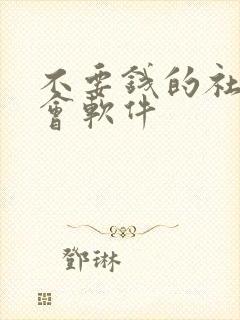 不要錢的社
會軟件
鄧琳